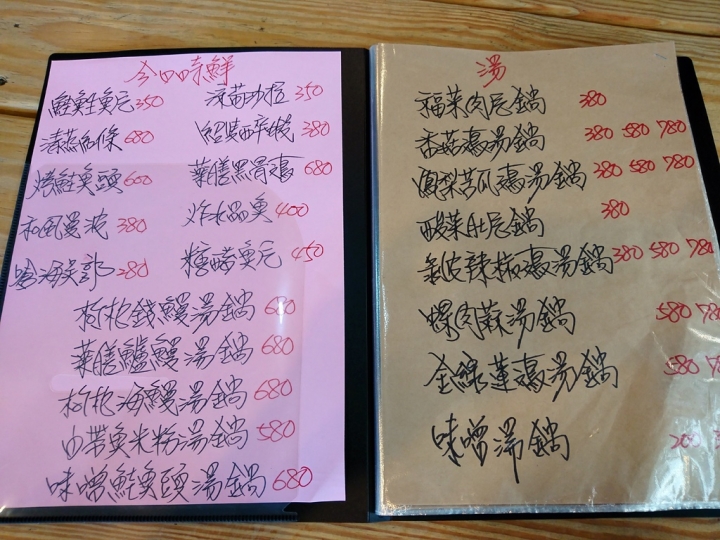 今日味鮮
鮭魚 350
涼 350
清蒸 條 680
380
烤鮭魚頭 600
藥膳黑骨雞 680
和風 380
炸水晶魚 400
嗆海 280
糖醋魚 450
枸杞錢鰻湯鍋 680
藥膳鱸鰻湯鍋 680
枸杞海鰻湯鍋 680
白帶魚米粉湯鍋 580
味噌鮭魚頭湯鍋 680
湯
福菜肉片鍋 380
香菇雞湯鍋 380 580 780
鳳梨苦瓜雞湯鍋 380 580 780
酸菜肚片鍋 380
剝皮辣椒雞湯鍋 380 580 780
螺肉蒜湯鍋 580
金線蓮雞湯鍋 580
味噌湯鍋 200